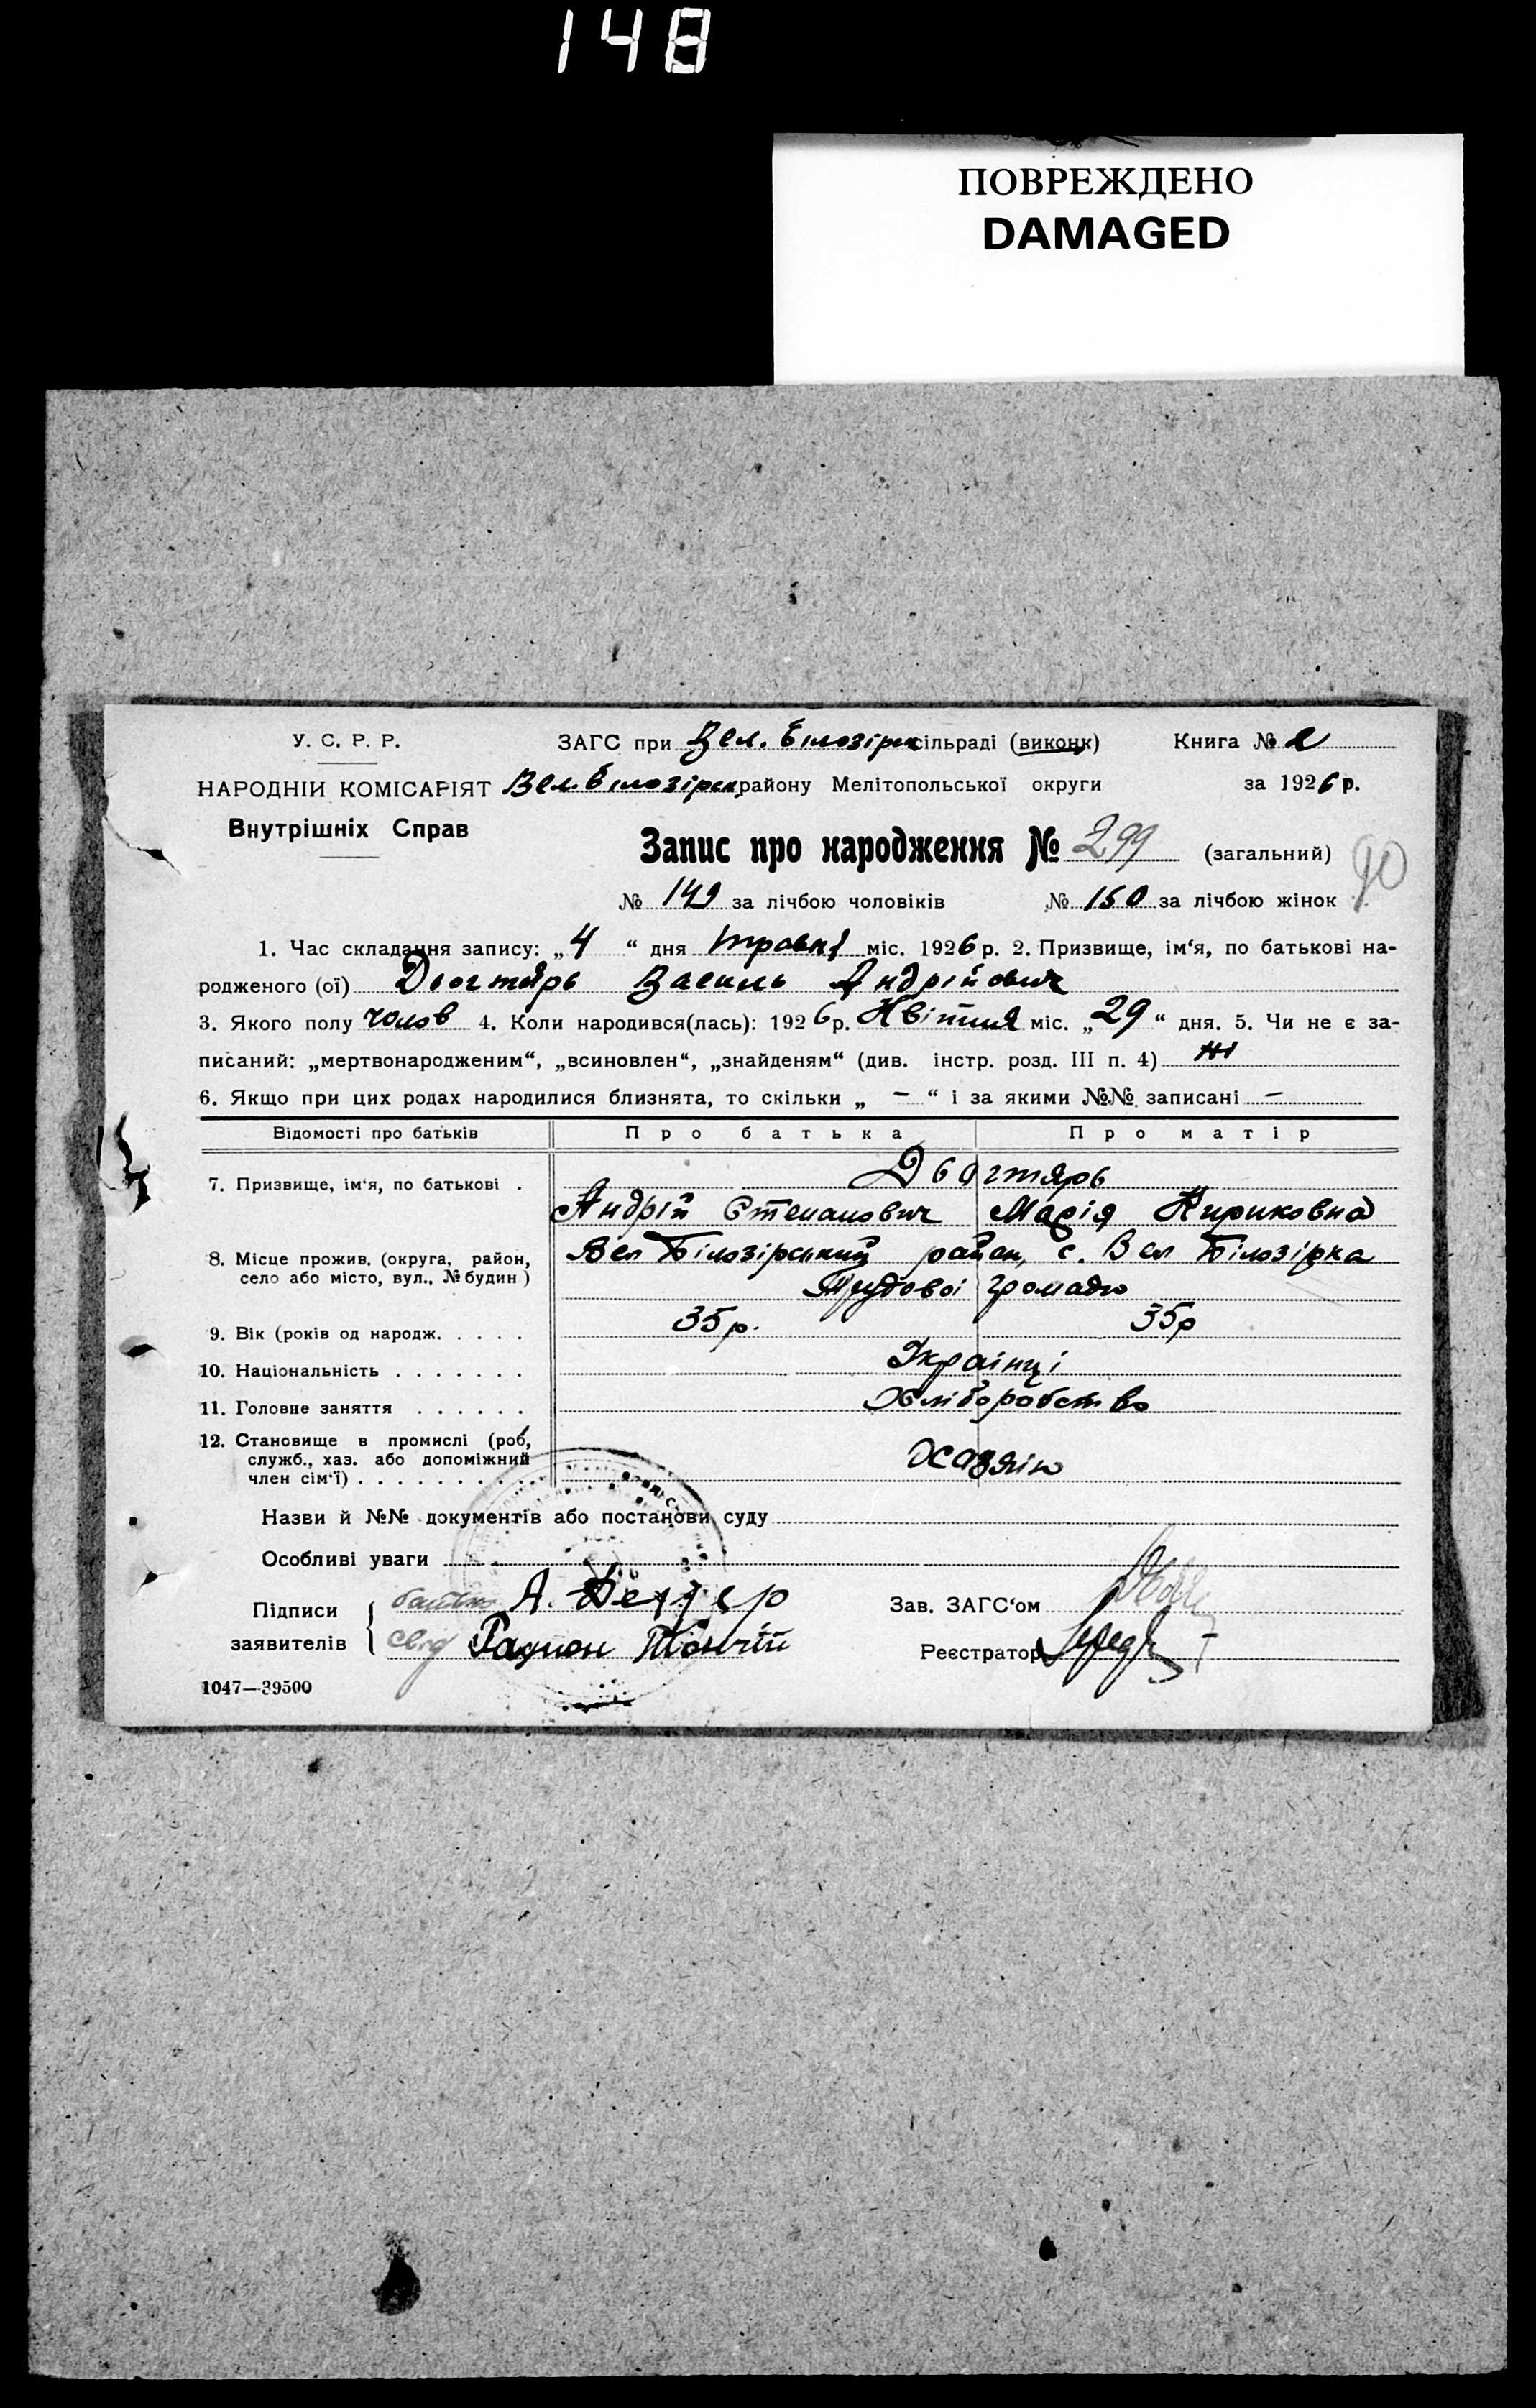 148
ПОВРЕЖДЕНО
DAMAGED
У. С. Р. Р.
ЗАГС при Вел. Білозірск сільраді (виконк) Книга №
НАРОДНІЙ КОМІСАРІЯТ Вел. Білозірск району Мелітопольської округи за 1926 р.
Внутрішніх Справ
Запис про народження № 299 (загальний)
90
№ 149 за лічбою чоловіків № 150 за лічбою жінок
1. Час складання запису: „4“ дня травня міс. 1926 р. 2. Призвище, ім‘я, по батькові на-
родженого (ої) Василь Андрійович
3. Якого полу чолов 4. Коли народився(лась): 1926 р. Квітня міс. „29“ дня. 5. Чи не є за-
писаний: „мертвонародженим“, „всиновлен“, „знайденям“ (див. інстр. розд. III п. 4) ні
6. Якщо при цих родах народилися близнята, то скільки „ – “ і за якими №№ записані –
Відомості про батьків Про батька Про матір
7. Призвище, ім‘я, по батькові .
Андрій Степанович Марія Кириковна
8. Місце прожив. (округа, район,
село або місто, вул., № будин)
Вел Білозірський район, с. Вел Білозірка
Трудової громади
9. Вік (років од народж. . . . . 35 р. 35 р
10. Національність . . . . . . . Українці
11. Головне заняття . . . . . . Хліборобство
12. Становище в промислі (роб,
служб., хаз. або допоміжний
член сім‘ї) . . . . . . . . . . Хазяїн
Назви й №№ документів або постанови суду
Особливі уваги
Підписи
заявителів
батько А.
свід Радион
Зав. ЗАГС‘ом
Реєстратор
1047—39500